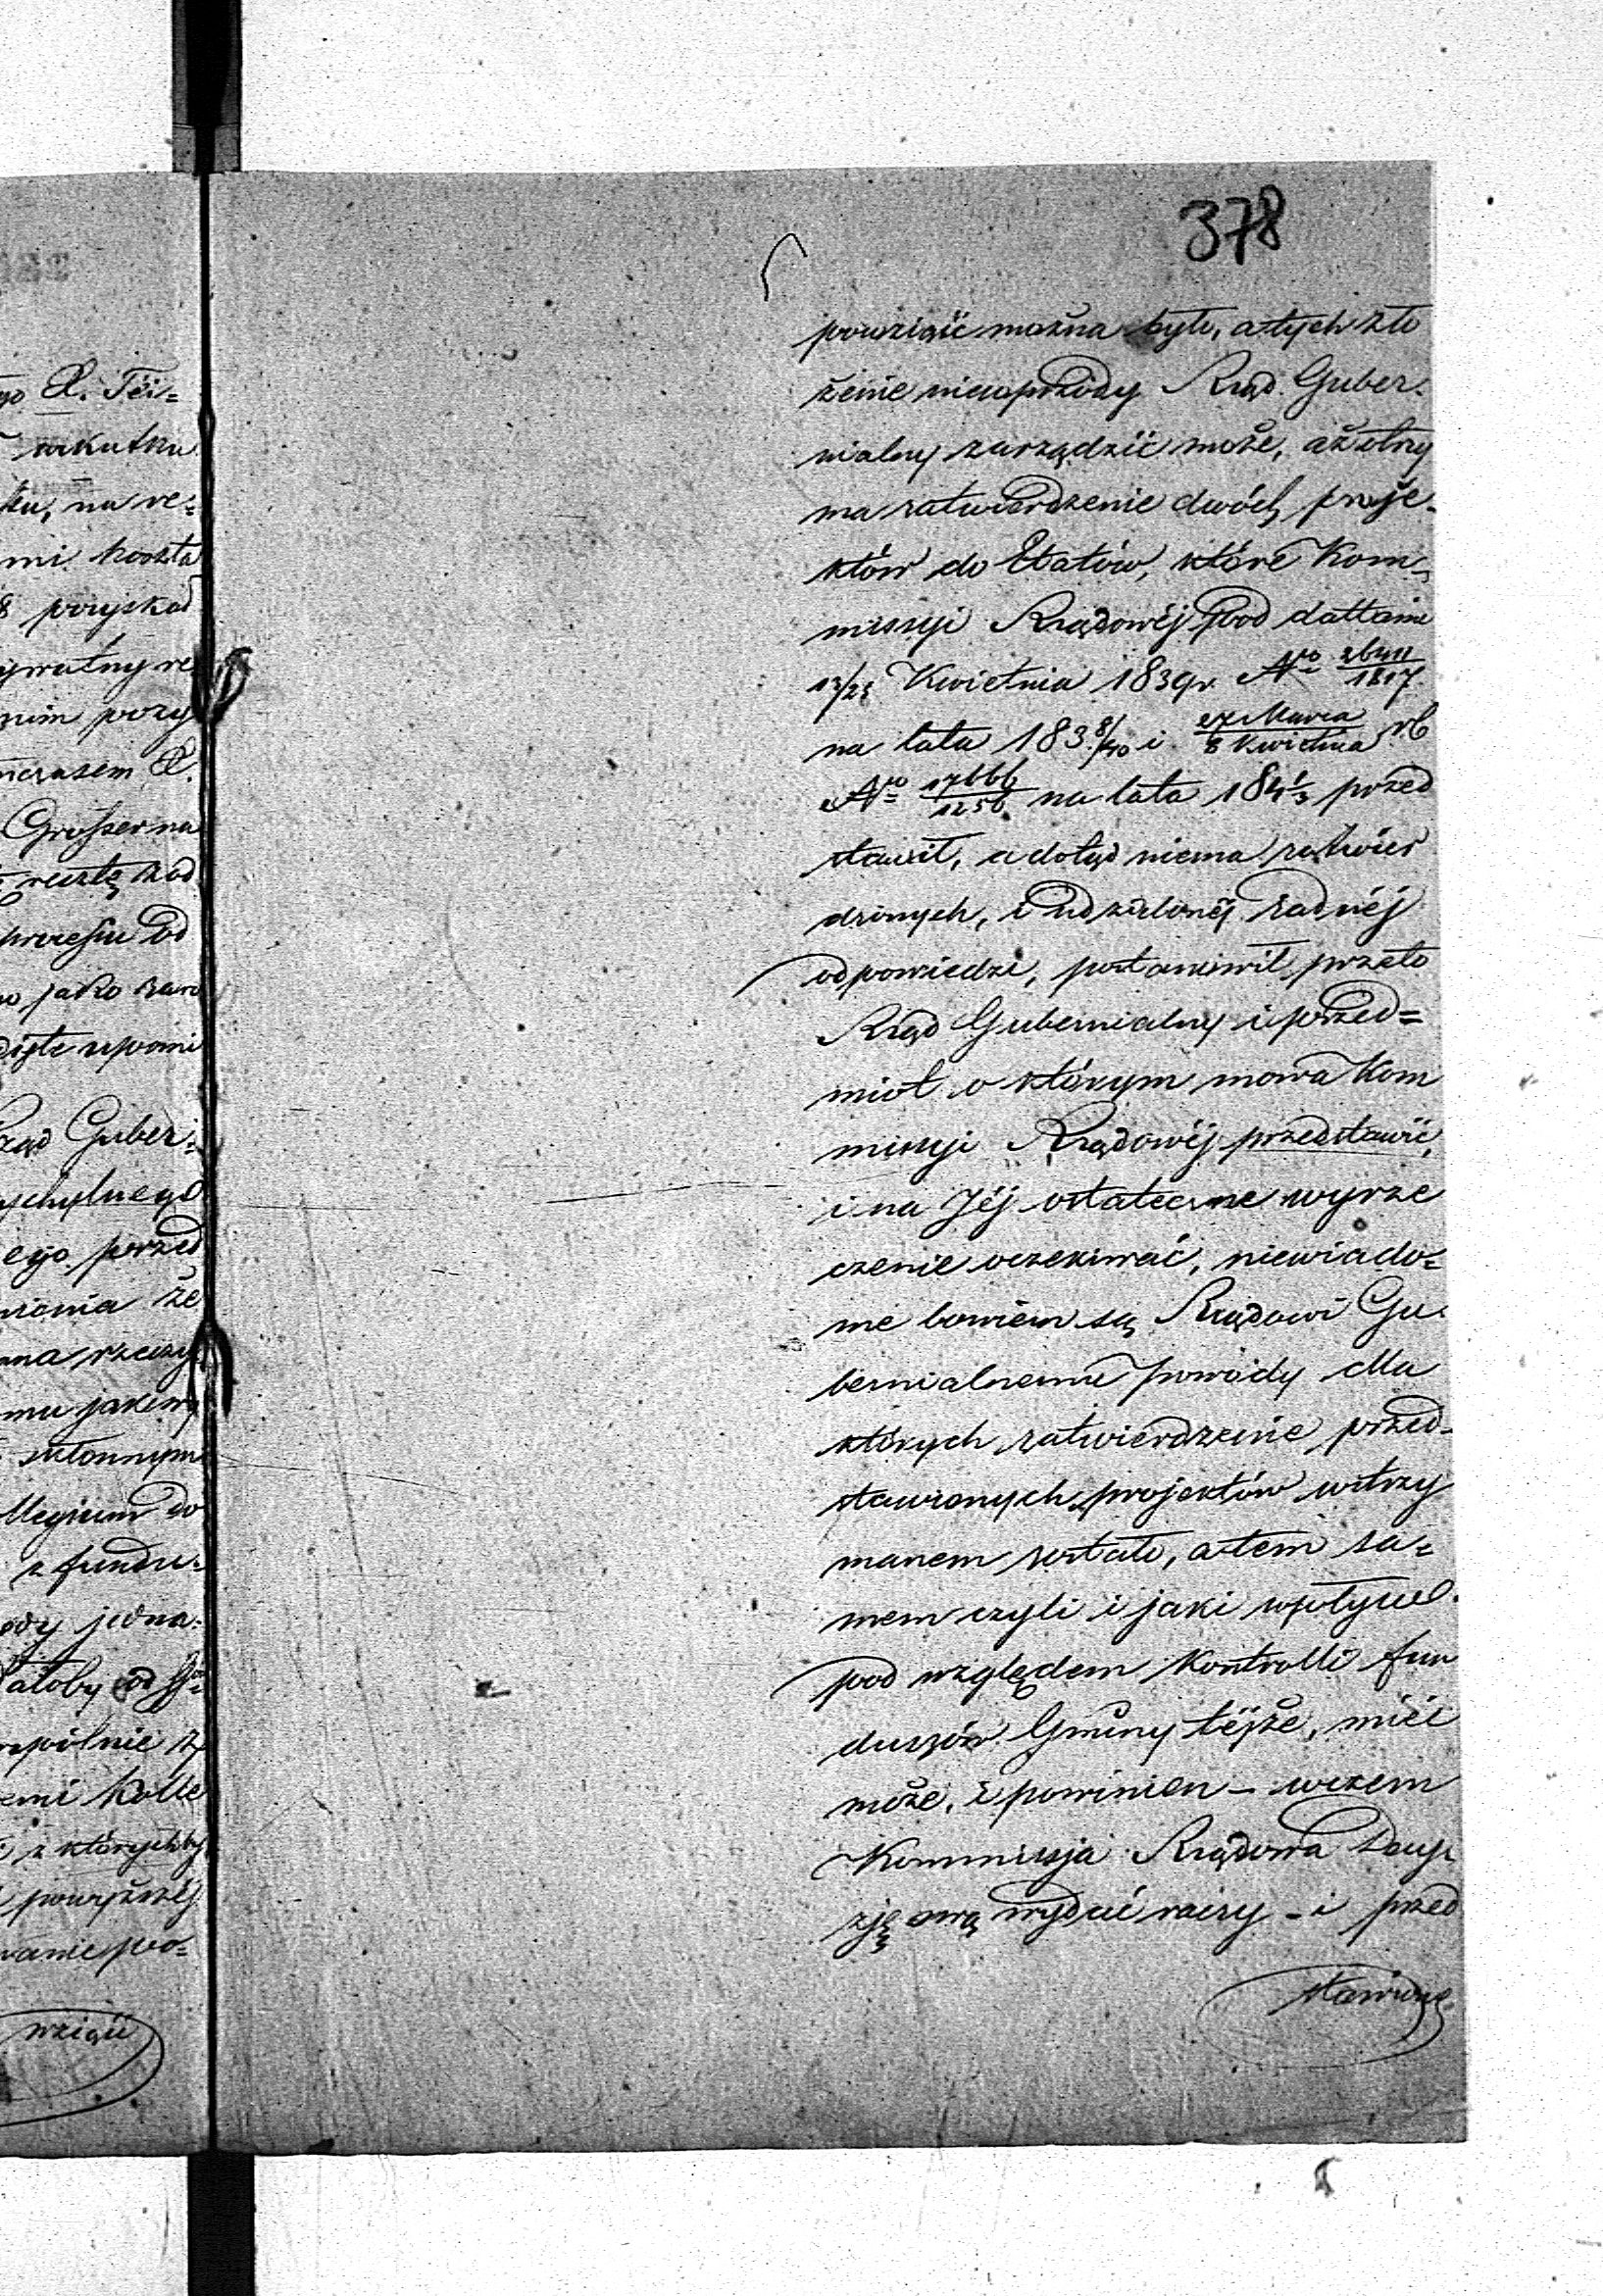 378
powziąść można było, a tych zło
żenie nieuprzody Rząd Guber-
nialny zarządzić może, aż otrzy
ma zatwierdzenie dwóch proje-
któw do Etatów, które Kom-
missyi Rządowéj pod dattami
13/25 Kwietnia 1839 r. Nro 26411/1817
na lata 183 8/40 i 27 Marca/8 Kwietnia r.b.
Nro 17666/1256 na lata 184 1/3 przed
stawił, a dotąd niema zatwier
dzonych, i udzielonéj żadnéj
odpowiedzi, postanowił przeto
Rząd Gubernialny i przed=
miot o którym mowa Kom
missyi Rządowéj przedstawić,
i na Jéj ostateczne wyrze
czenie oczekiwać, niewiado=
me bowiem są Rządowi Gu-
bernialnemu powody dla
których zatwierdzenie przed-
stawionych projektów wstrzy
manem zostało, a tem sa=
mem czyli i jaki wpływ
pod względem Kontrolli fun
duszów Gminy téjże, mieć
może, i powinien –
Kommissja Rządowa Decy-
zję swą wydać raczy – i przed
stawione
go X. Téi=
w skutku
na re=
mi koszta
8 pozyskać
nim pozy
X.
Grosser na
resztę
od
jako
Rząd Guber:
ychylnego
ego przed
że
rzeczy
mu
skłonnym
llegium do
z fundu=
jedna=
atoby od
spólnie z
emi Kolle
z którychby
powyższéj
wanie po=
wziąść